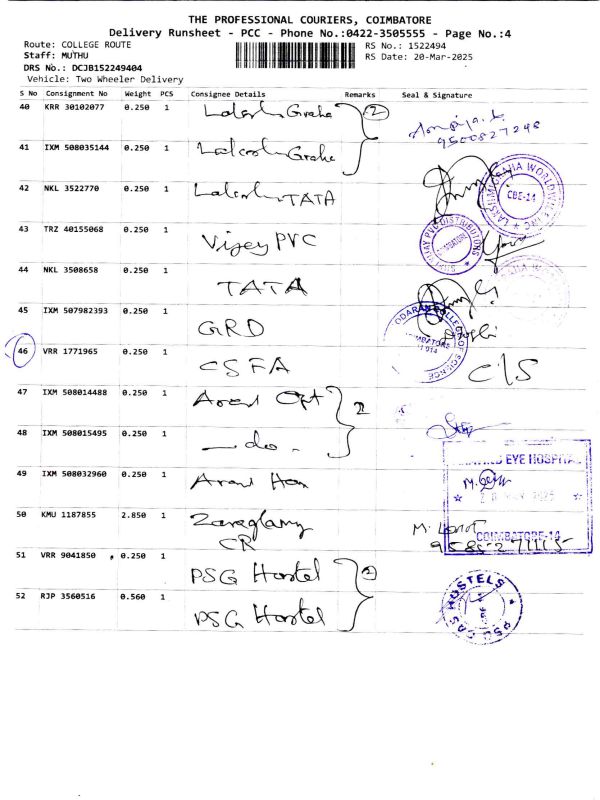 THE PROFESSIONAL COURIERS, COIMBATORE
Delivery Runsheet - PCC - Phone No.:0422-3505555 - Page No.:4
Route: COLLEGE ROUTE RS No.: 1522494
Staff: MUTHU RS Date: 20-Mar-2025
DRS No.: DCJB152249404
Vehicle: Two Wheeler Delivery
S No Consignment No Weight PCS Consignee Details Remarks Seal & Signature
40 KRR 30102077 0.250 1 2
9500827248
41 IXM 508035144 0.250 1
42 NKL 3522770 0.250 1 TATA
CBE-14
43 TRZ 40155068 0.250 1 Vijey PVC
SHRI VIJAY PVC DISTRIBUTORS COIMBATORE
44 NKL 3508658 0.250 1 TATA
45 IXM 507982393 0.250 1 GRD
COLLEGE OF SCIENCE
46 VRR 1771965 0.250 1 CSFA C/S
47 IXM 508014488 0.250 1 2
48 IXM 508015495 0.250 1 - do -
49 IXM 508032960 0.250 1
EYE HOSPITAL
2025
COIMBATORE-14
50 KMU 1187855 2.850 1
CR
51 VRR 9041850 0.250 1 PSG Hostel 2
52 RJP 3560516 0.560 1 PSG Hostel
PSG CAS HOSTELS